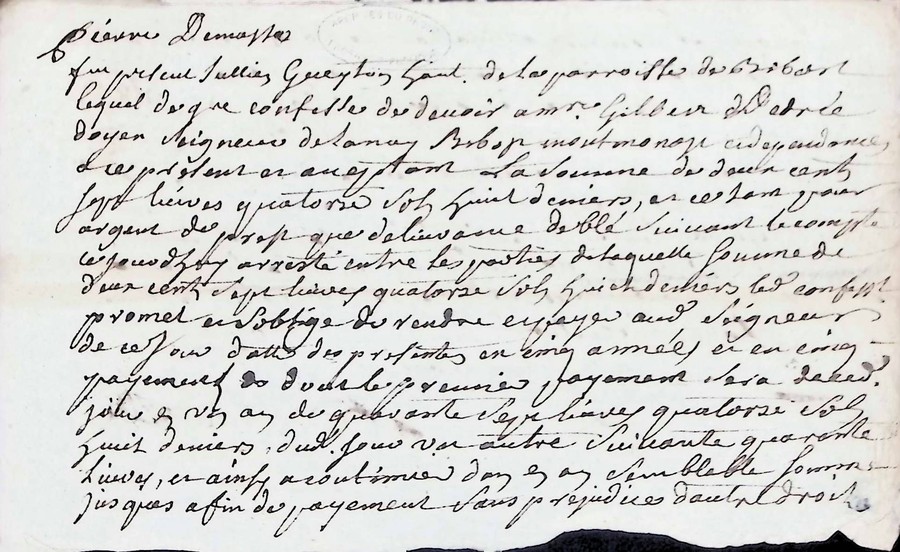 Pierre Demasse
fut présent Jullien Gueyton hant. de la parroisse de
lequel de gré confesse de devoir a mr. Gilbert
doyen Seigneur de Lanvy montmorap et dependances
a ce présent et acceptant La somme de deux cent
sept livres quatorse sols huit deniers, et ce tant pour
argent de prest que delivrance de blé suivant le compte
ce jourdhuy arresté entre les parties de laquelle somme de
deux cent sept livres quatorse sols huit deniers led confesst
promet et soblige de rendre et payer aud Seigneur
de ce jour datte des presentes en cinq années et en cinq
payements dont le premier payement sera de ced.
jour en un an de quarante sept livres quatorse sols
huit deniers, dud. jour un autre suivante quarante
livres, et ainsy a continuer dan en an semblable somme
jusques a fin de payement sans prejudice dautre droit